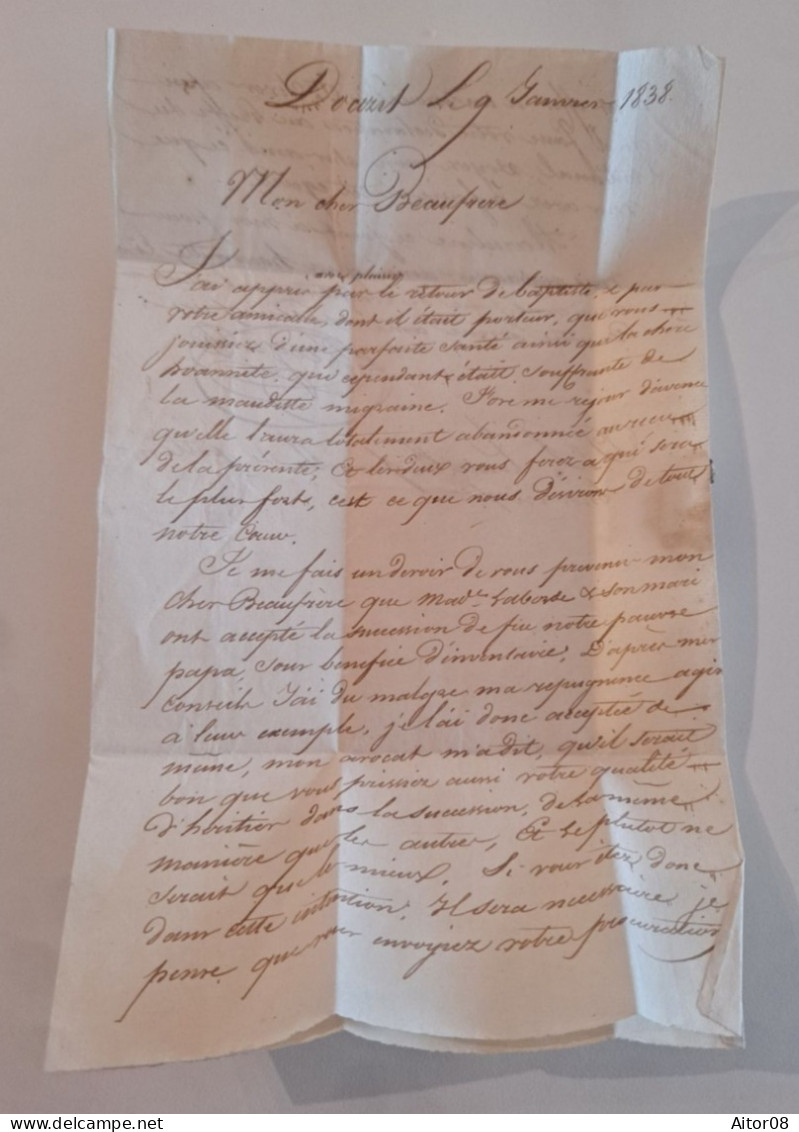 Doazit le 9 Janvier 1838.
Mon cher Beaufrère
avec plaisir
J'ai appris par le retour de baptiste, & par
votre amicale, dont il était porteur, que vous
jouissiez d'une parfaite santé ainsi que la chère
hoannéte. que cependant était souffrante de
la maudite migraine. J'ose me rejouir d'avance
qu'elle l'aura totalement abandonnée au reçu
de la présente; & tendeux vous ferez a qui sera
le plus fort, c'est ce que nous désirons de tout
notre Coeur.
Je me fais un devoir de vous prevenir mon
cher Beaufrère que Made Laborde & son mari
ont accepté la sucession de feu notre pauvre
papa, sour benefice d'inventaire. D'après mes
conseils J'ai du malgre ma repugnence agir
à leur exemple, je l'ai donc acceptée de
même, mon avocat m'a dit, qu'il serait
bon que vous prissiez aussi votre qualité
d'héritier dans la sucession, de la même
manière que les autres, & le plutot ne
serait que le mieux. Si vous êtez donc
dans cette intention, Il sera necessaire je
pense, que vous envoyiez votre procuration
Delcampe.net
Aitor08